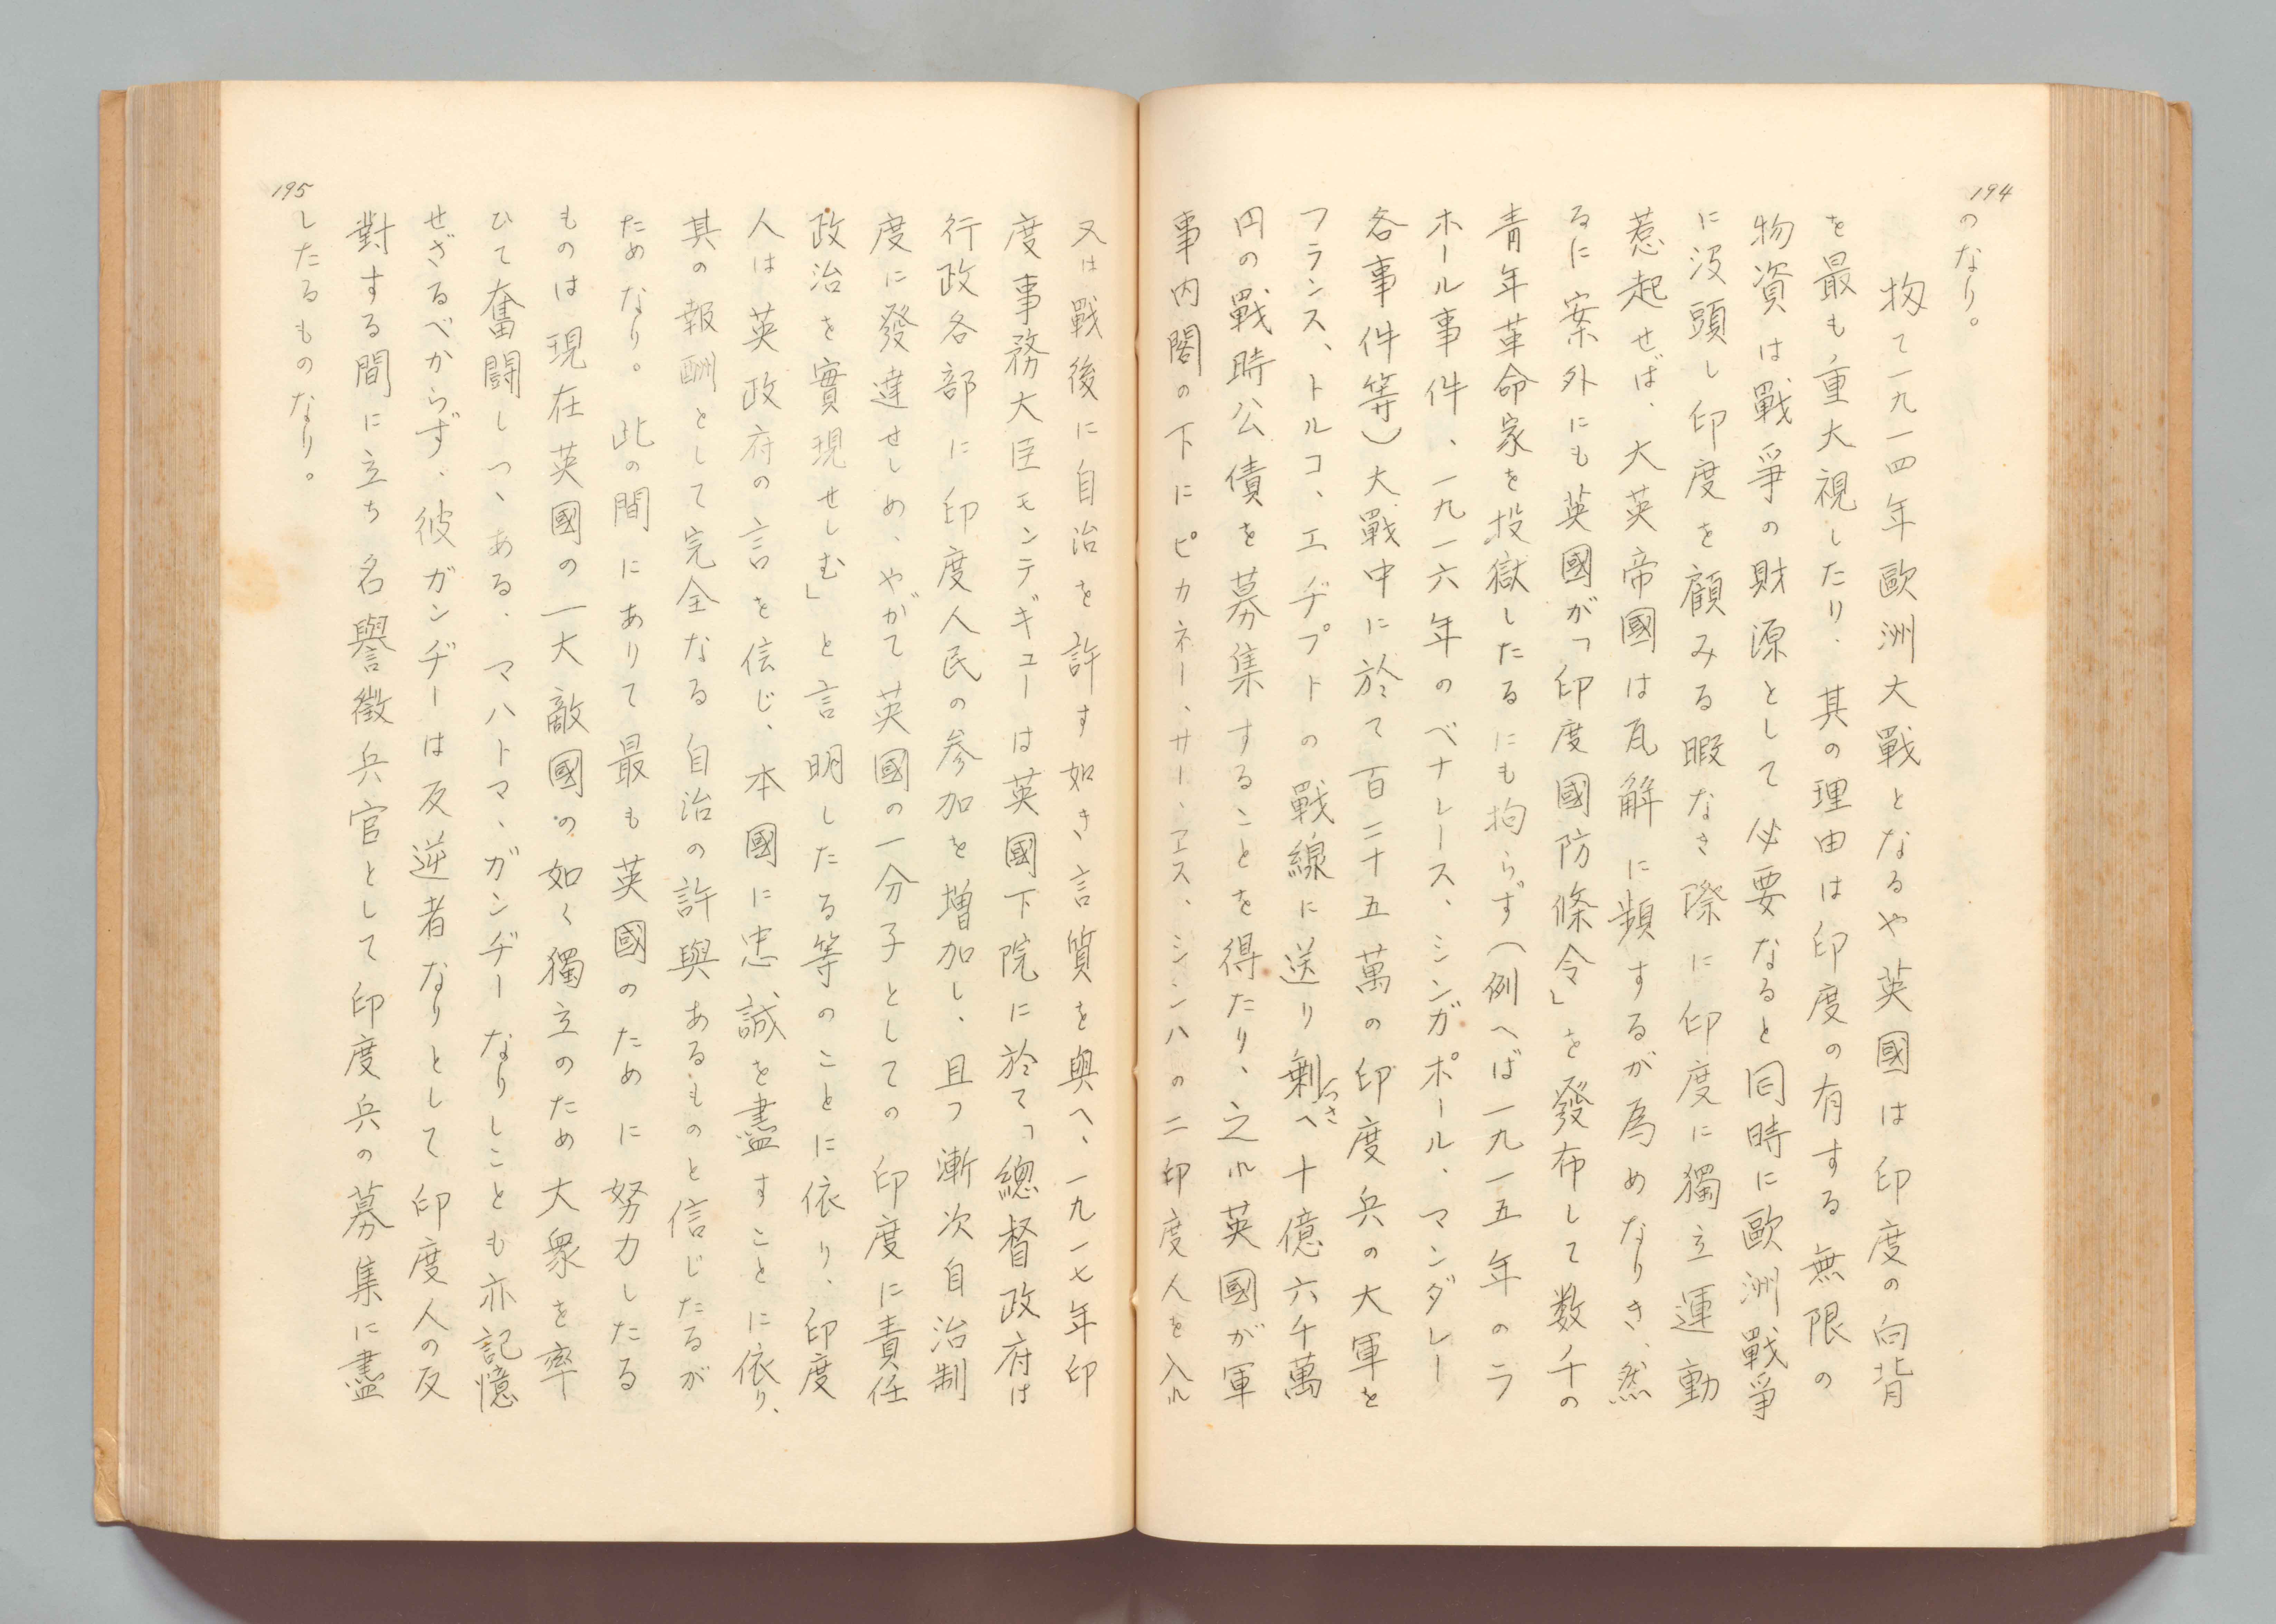 194
のなり。
扨て一九一四年歐洲大戰となるや英國は印度の向背
を最も重大視したり、其の理由は印度の有する無限の
物資は戰爭の財源として必要なると同時に歐洲戰爭
に沒頭し印度を顧みる暇なき際に印度に獨立運動
惹起せば、大英帝國は瓦解に頻するが為めなりき、然
るに案外にも英國が「印度國防條令」を發布して数千の
青年革命家を投獄したるにも拘らず(例へば一九一五年のラ
ホール事件、一九一六年のベナレース、シンガポール、マンダレー
各事件等)大戰中に於て百二十五萬の印度兵の大軍を
フランス、トルコ、エヂプトの戰線に送り剰へ十億六千萬
円の戰時公債を募集することを得たり、之れ英國が軍
事内閣の下にピカネー、サー、エス、シンハの二印度人を入れ
又は戰後に自治を許す如き言質を與へ、一九一七年印
度事務大臣モンテギューは英國下院に於て「總督政府は
行政各部に印度人民の参加を増加し、且つ漸次自治制
度に發達せしめ、やがて英國の一分子としての印度に責任
政治を實現せしむ」と言明したる等のことに依り、印度
人は英政府の言を信じ、本國に忠誠を盡すことに依り、
其の報酬として完全なる自治の許與あるものと信じたるが
ためなり。此の間にありて最も英國のために努力したる
ものは現在英國の一大敵國の如く獨立のため大衆を率
ひて奮闘しつゝある、マハトマ、ガンヂーなりしことも亦記憶
せざるべからず、彼ガンヂーは反逆者なりとして印度人の反
對する間に立ち名譽徴兵官として印度兵の募集に盡
したるものなり。
195